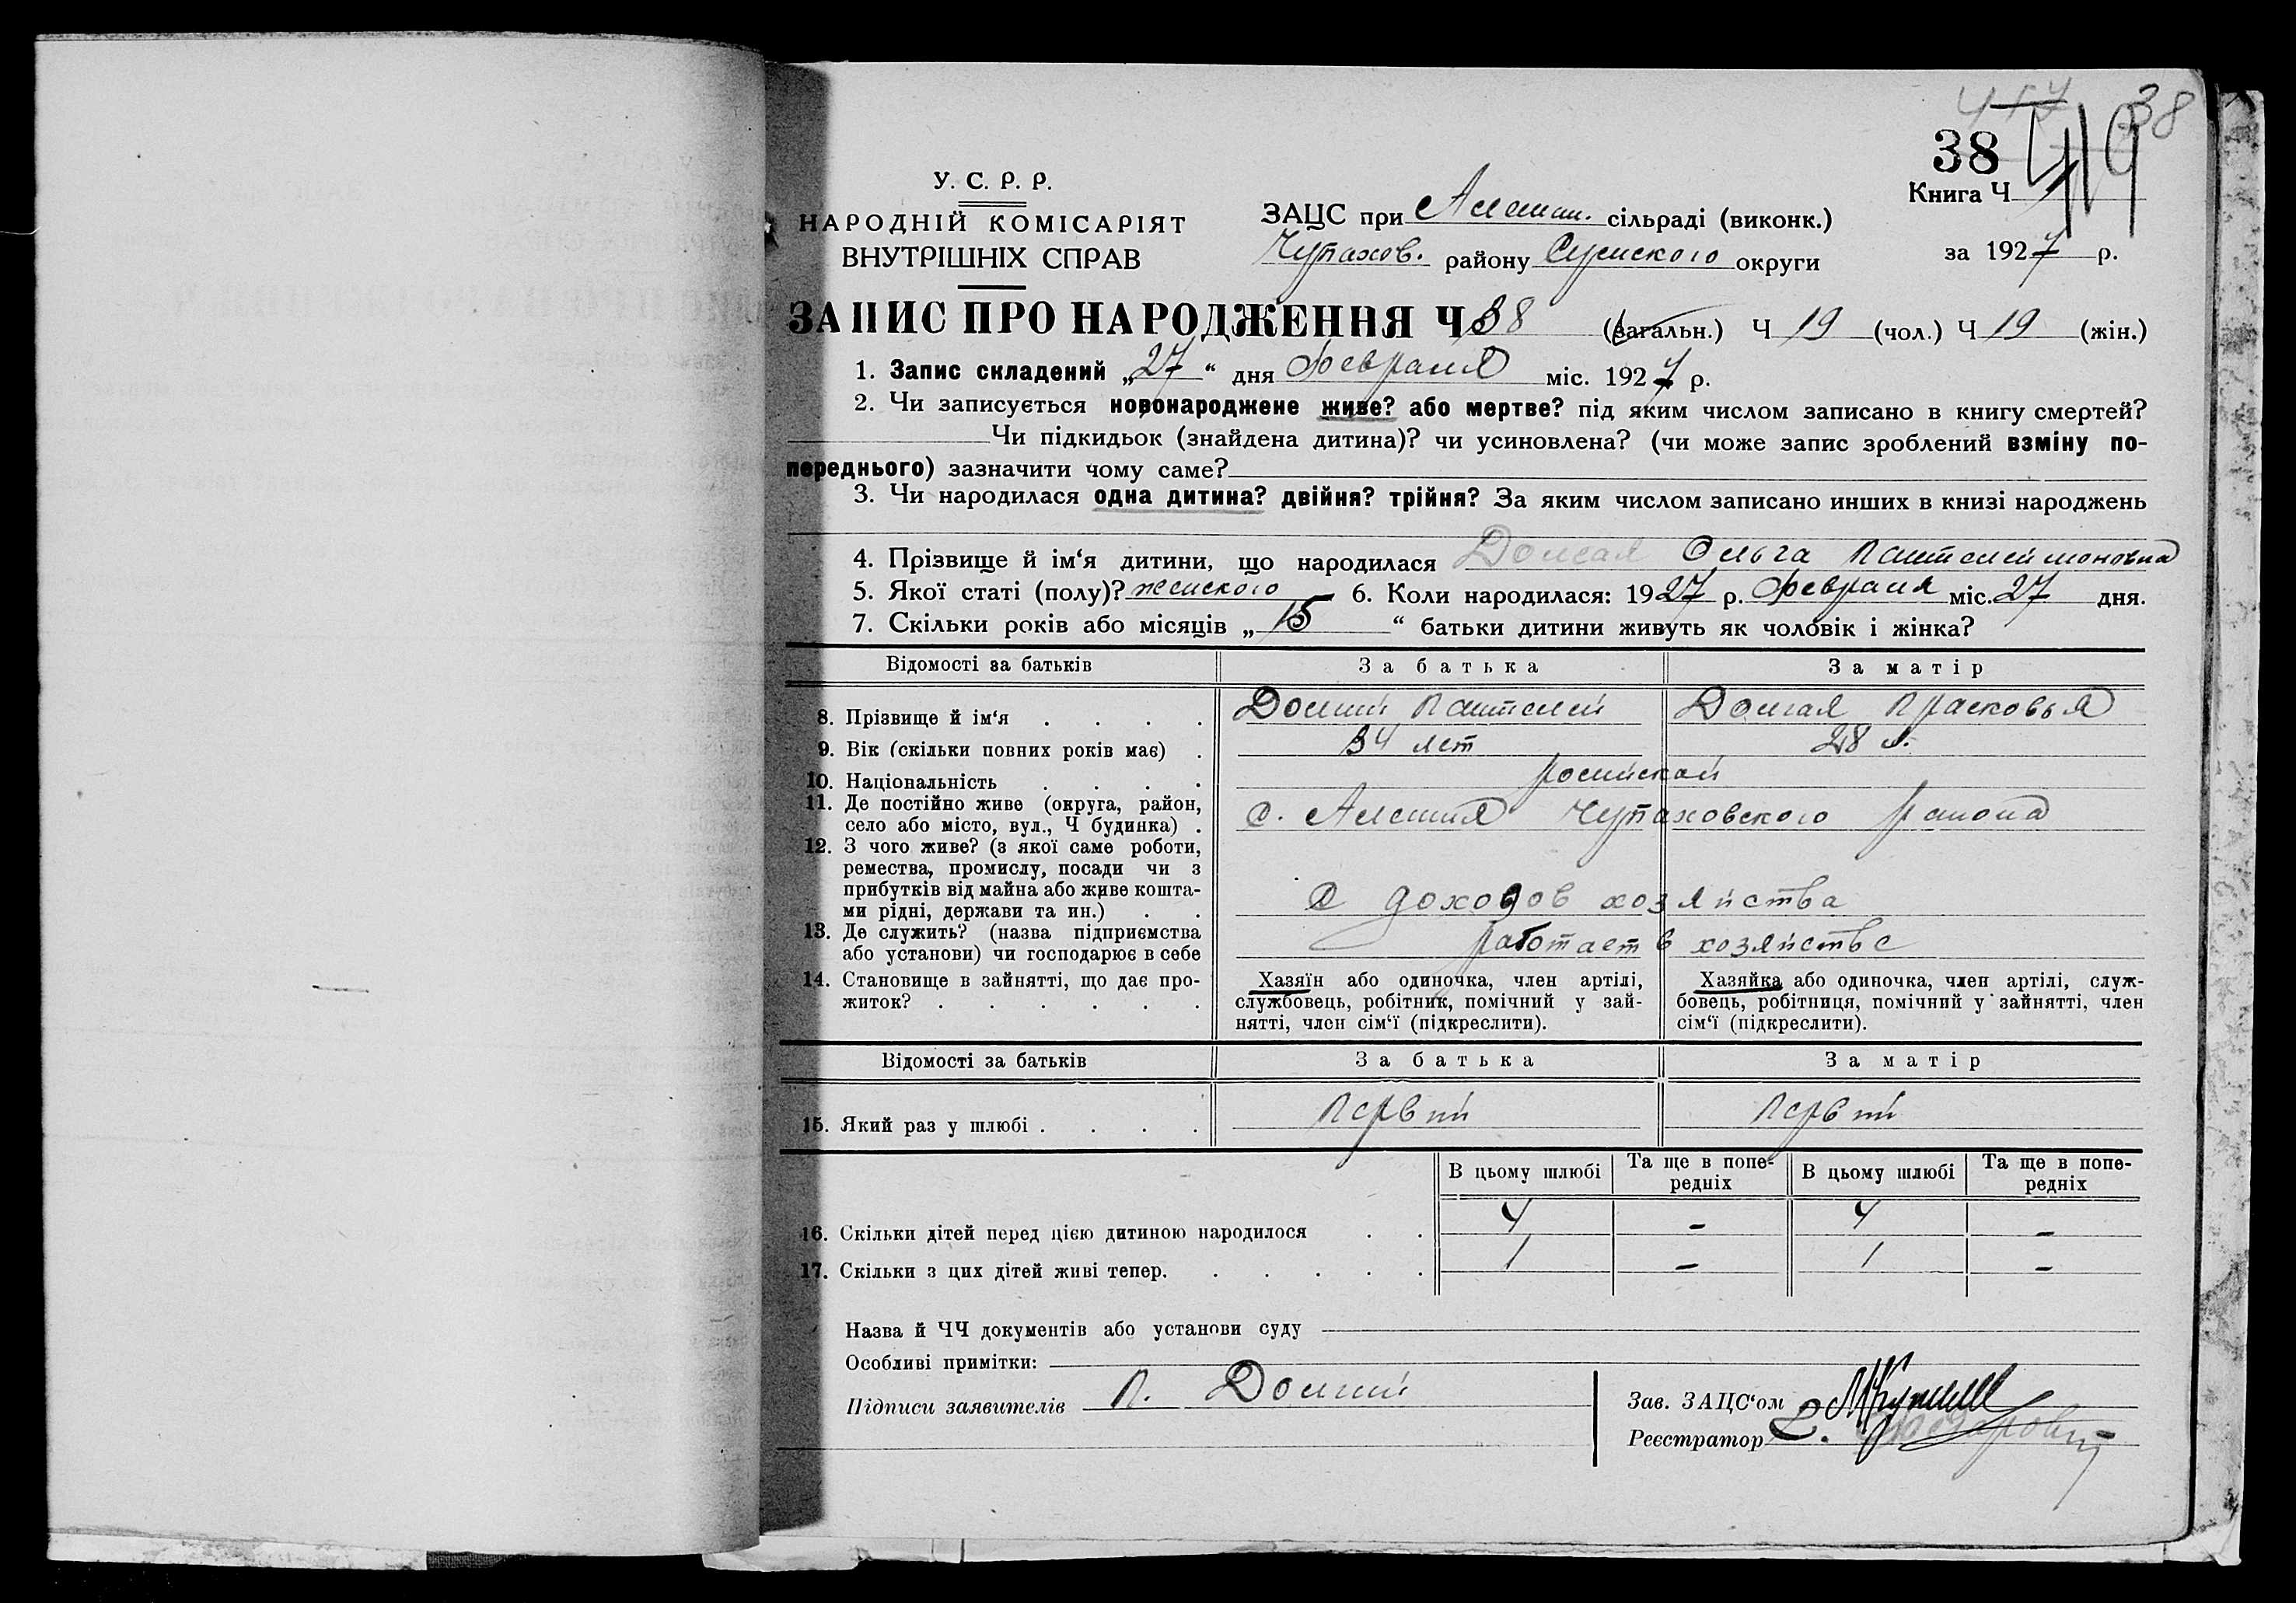 38
38
Книга Ч 1
У. С. Р. Р.
НАРОДНІЙ КОМІСАРІЯТ
ВНУТРІШНІХ СПРАВ
ЗАЦС при Алешан. сільраді (виконк.)
Чупахов. району Сумского округи
за 1927 р.
ЗАПИС ПРО НАРОДЖЕННЯ Ч 38 (загальн.) Ч 19 (чол.) Ч 19 (жін.)
1. Запис складений „27“ дня Февраля міс. 1927 р.
2. Чи записується новонароджене живе? або мертве? під яким числом записано в книгу смертей?
Чи підкидьок (знайдена дитина)? чи усиновлена? (чи може запис зроблений взміну по-
переднього) зазначити чому саме?
3. Чи народилася одна дитина? двійня? трійня? За яким числом записано инших в книзі народжень
4. Прізвище й ім‘я дитини, що народилася Долгая Ольга Пантелеймоновна
5. Якої статі (полу)? женского 6. Коли народилася: 1927 р. Февраля міс. 27 дня.
7. Скільки років або місяців „15“ батьки дитини живуть як чоловік і жінка?
Відомості за батьків За батька За матір
8. Прізвище й ім‘я . . . . Долгий Пантелей Долгая Прасковья
9. Вік (скільки повних років має) . 34 лет 28 л.
10. Національність . . . . росийской
11. Де постійно живе (округа, район,
село або місто, вул., Ч будинка) . с. Алешня Чупаховского района
12. З чого живе? (з якої саме роботи,
ремества, промислу, посади чи з
прибутків від майна або живе кошта-
ми рідні, держави та ин.) . . С доходов хозяйства
13. Де служить? (назва підприємства
або установи) чи господарює в себе работает в хозяйстве
14. Становище в зайнятті, що дає про-
житок? . . . . . .
Хазяїн або одиночка, член артілі,
службовець, робітник, помічний у зай-
нятті, член сім‘ї (підкреслити).
Хазяйка або одиночка, член артілі, служ-
бовець, робітниця, помічний у зайнятті, член
сім‘ї (підкреслити).
Відомості за батьків За батька За матір
15. Який раз у шлюбі . . . . Первий Первий
В цьому шлюбі Та ще в попе-редніх В цьому шлюбі Та ще в попе-редніх
16. Скільки дітей перед цією дитиною народилося . . 4 - 4 -
17. Скільки з цих дітей живі тепер. . . . . . 1 - 1 -
Назва й ЧЧ документів або установи суду
Особливі примітки:
Підписи заявителів П. Долгий
Зав. ЗАЦС‘ом
Реєстратор